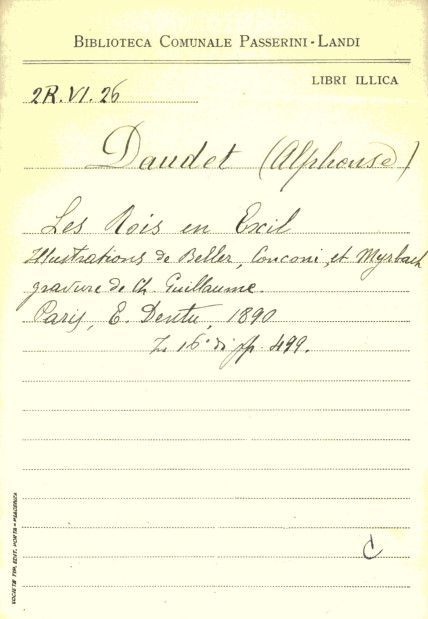 BIBLIOTECA COMUNALE PASSERINI-LANDI
LIBRI ILLICA
2R.VI.26
Daudet (Alphonse)
Les Rois en Exil
Illustrations de Beller, Conconi, et Myrbach
gravure de Ch. Guillaume.
Paris, E. Dentu, 1890
In 16° di pp. 499.
C
SOCIETÀ TIP. EDIT. PORTA - PIACENZA